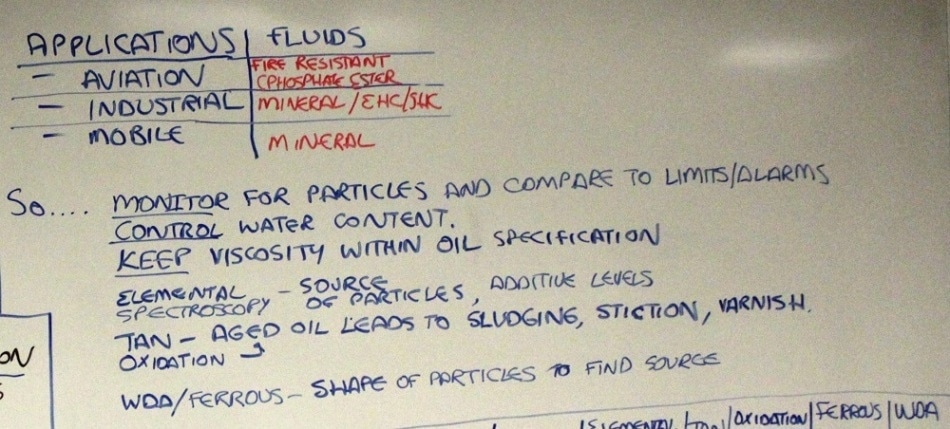 APPLICATIONS | FLUIDS
- AVIATION | FIRE RESISTANT
(PHOSPHATE ESTER
- INDUSTRIAL | MINERAL/EHC/SLK
- MOBILE | MINERAL
So.... MONITOR FOR PARTICLES AND COMPARE TO LIMITS/ALARMS
CONTROL WATER CONTENT.
KEEP VISCOSITY WITHIN OIL SPECIFICATION
ELEMENTAL SPECTROSCOPY - SOURCE OF PARTICLES, ADDITIVE LEVELS
TAN - AGED OIL LEADS TO SLUDGING, STICTION, VARNISH.
OXIDATION
WDA/FERROUS - SHAPE OF PARTICLES TO FIND SOURCE
ON
S
ELEMENTAL/TAN/OXIDATION|FERROUS|WDA